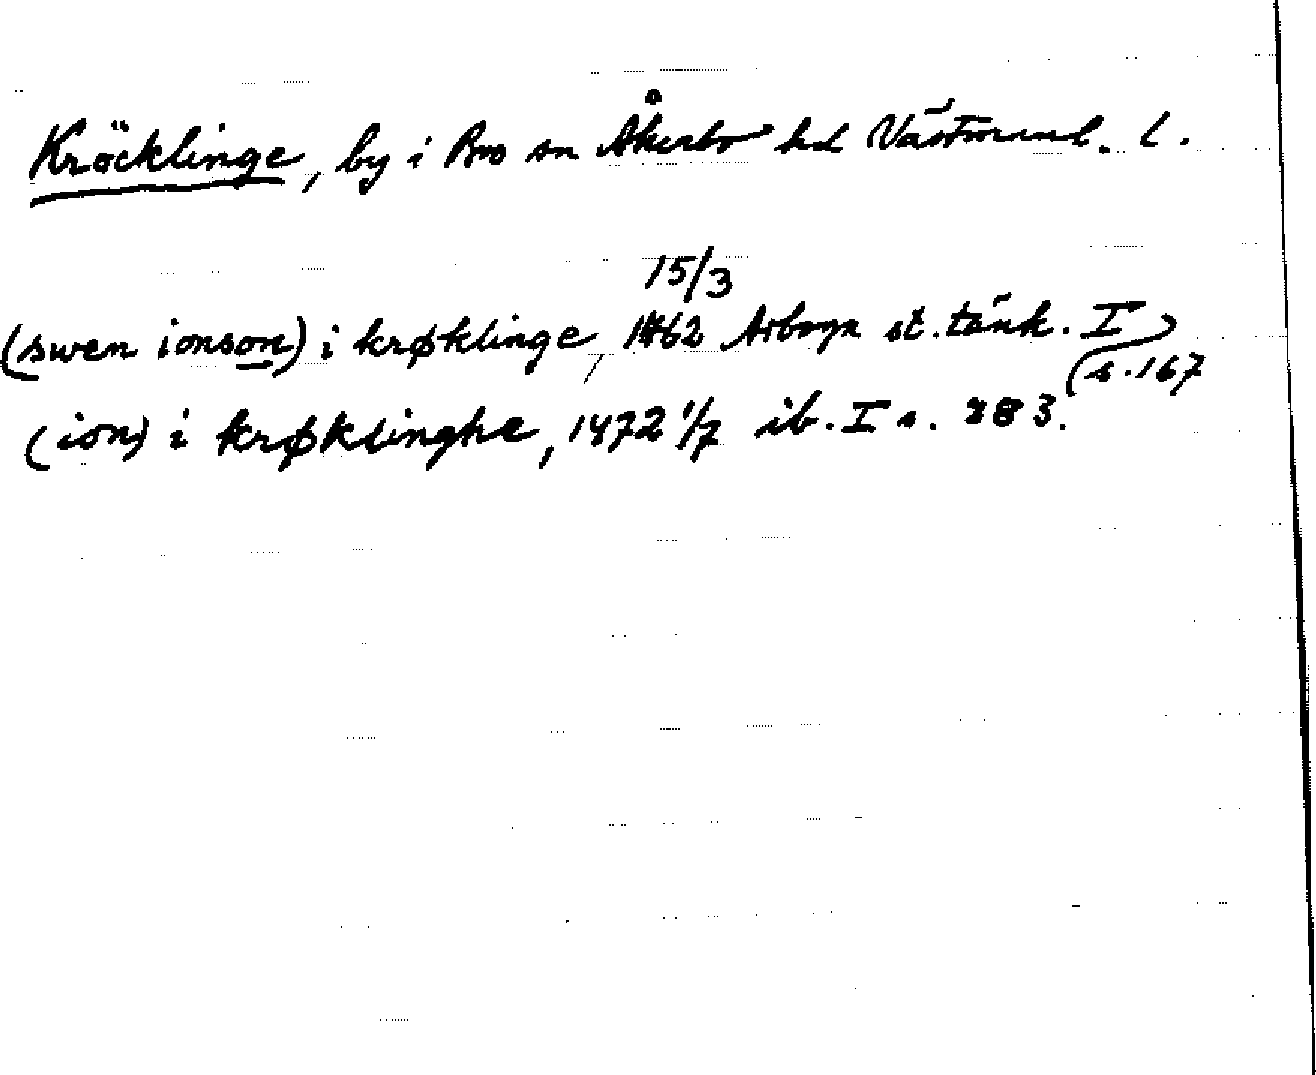 Kröcklinge, by i Bro sn Åkerbo hd Västmanl. l.
15/3
(swen ionson) i krøklinge, 1462 Arboga st. tänk. I
(s. 167
(ion) i krøklinghe, 1472 1/7 ib. I s. 283.